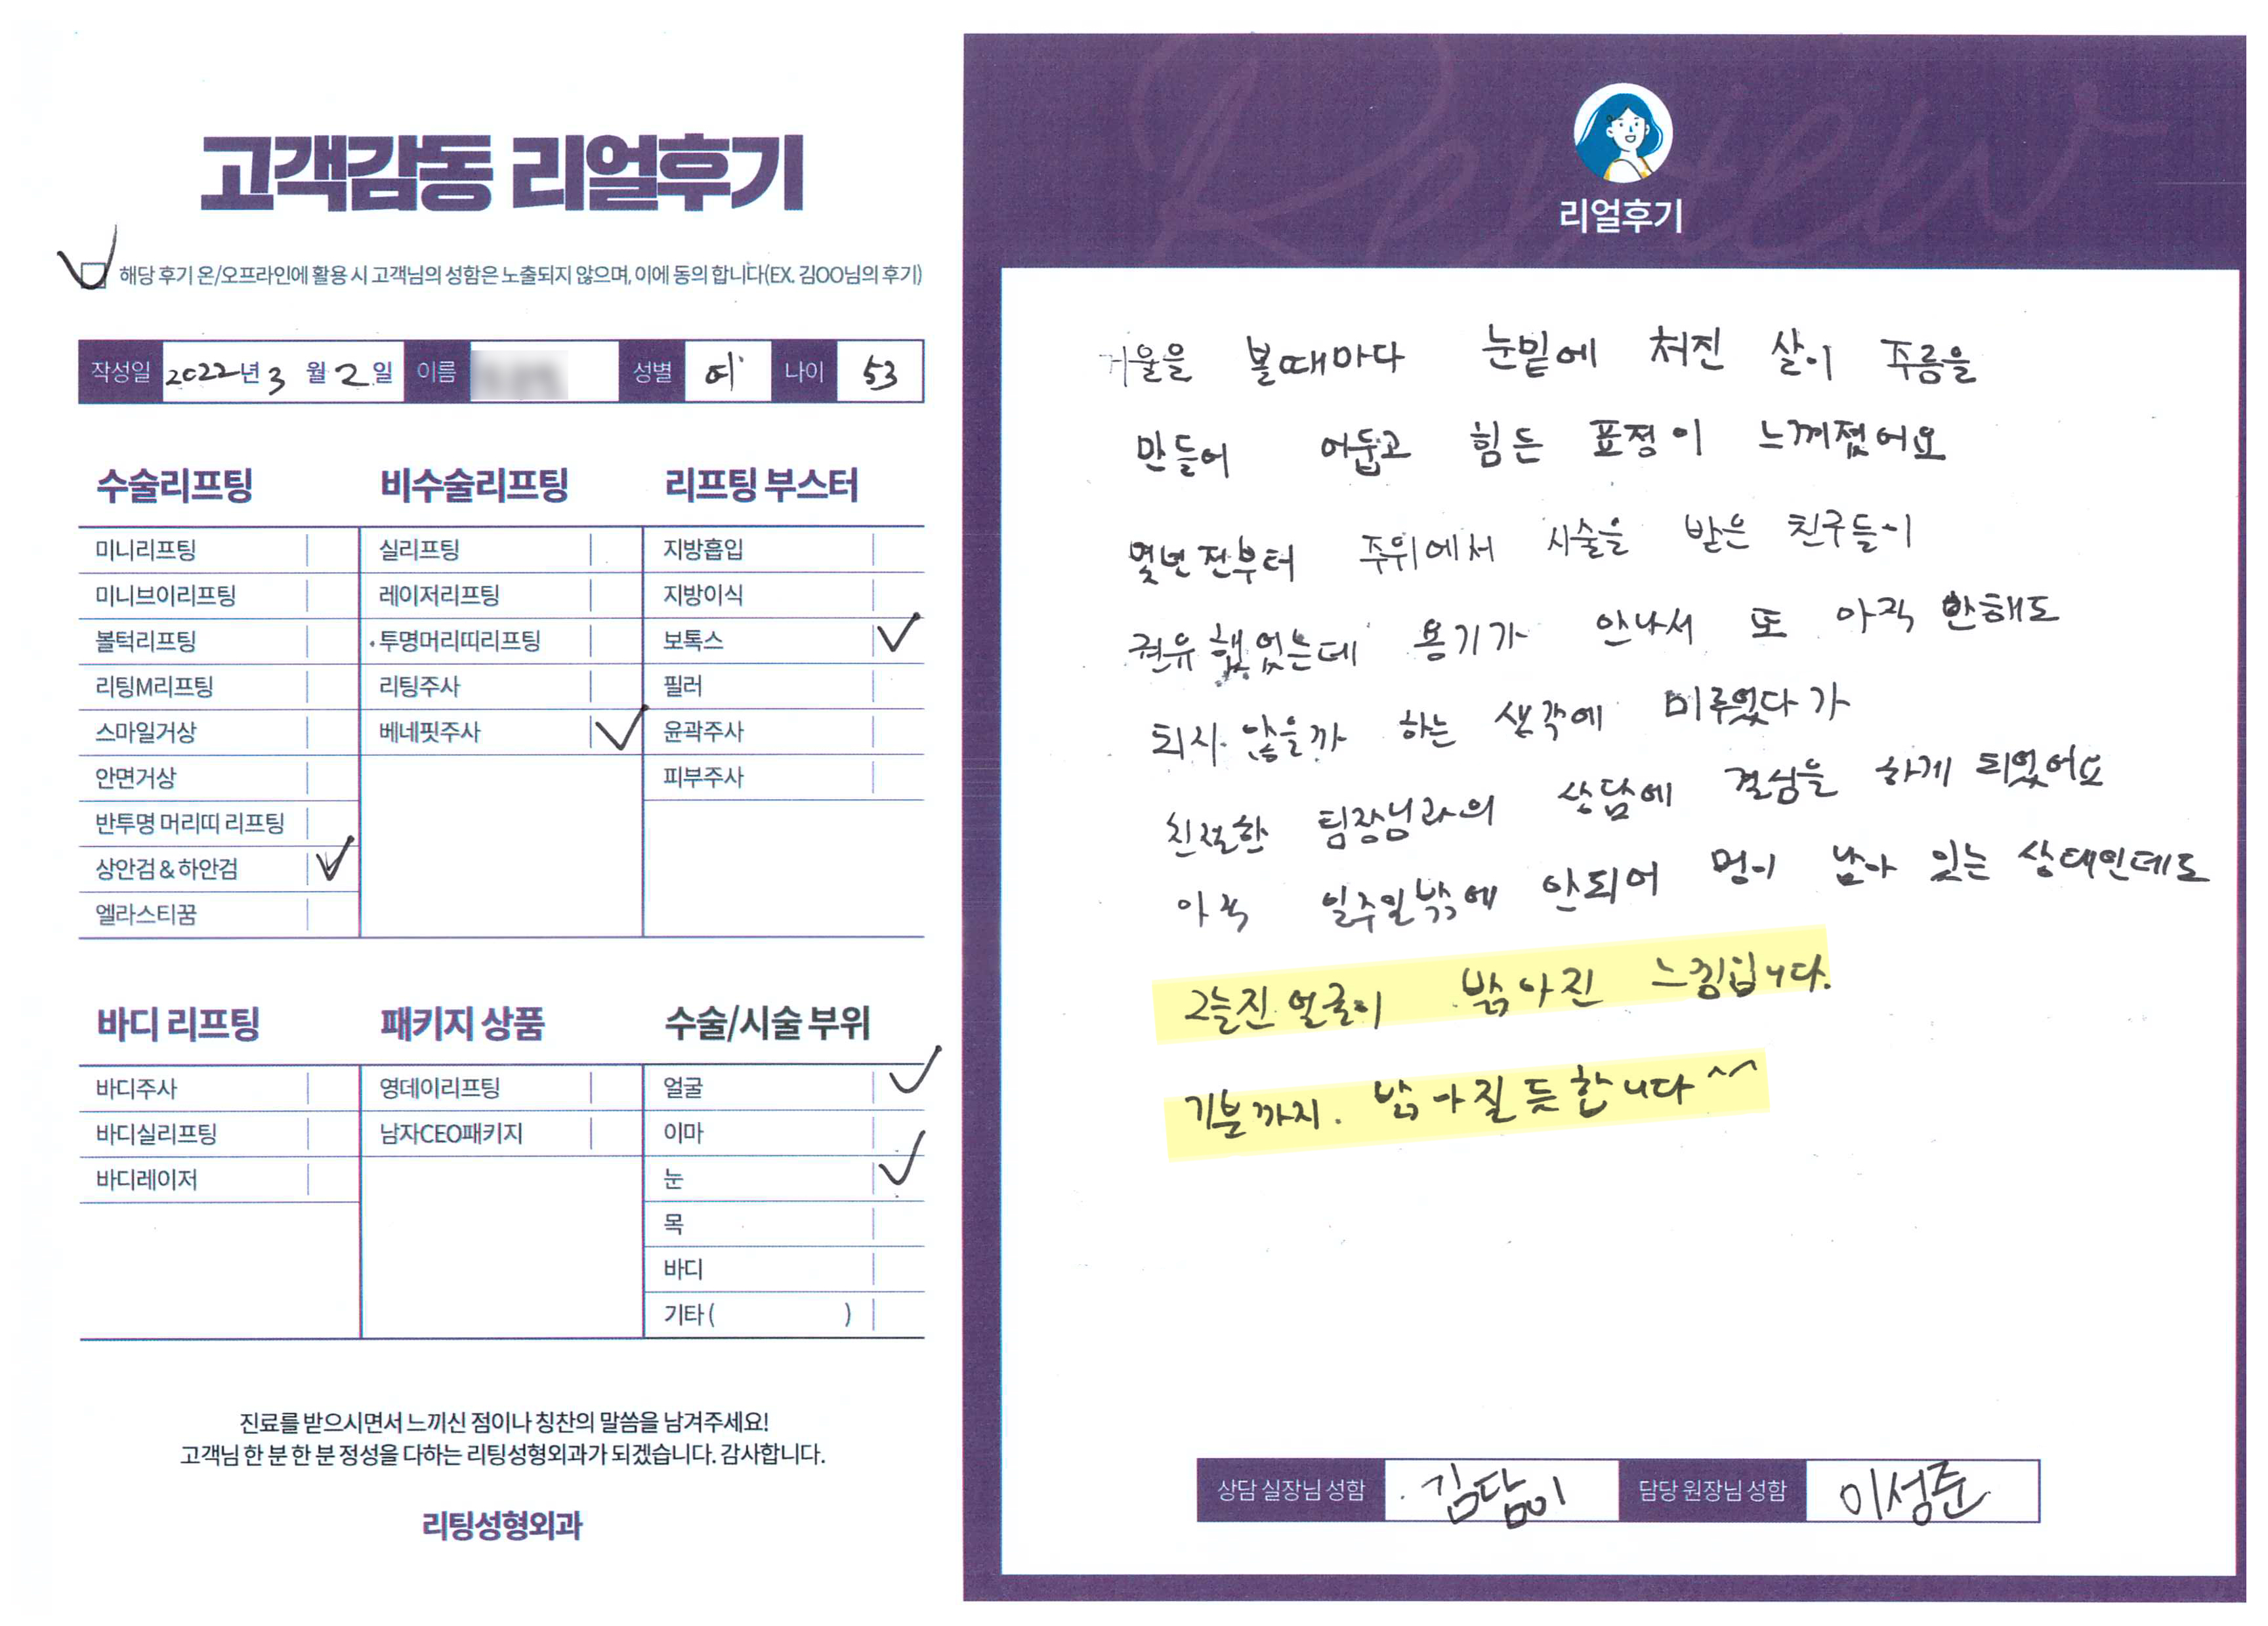 고객감동 리얼후기
해당 후기 온/오프라인에 활용 시 고객님의 성함은 노출되지 않으며, 이에 동의 합니다(EX. 김OO님의 후기)
작성일 2022년 3 월 2 일 이름 성별 여 나이 53
수술리프팅
미니리프팅
미니브이리프팅
볼턱리프팅
리팅M리프팅
스마일거상
안면거상
반투명 머리띠 리프팅
상안검 & 하안검
엘라스티꿈
비수술리프팅
실리프팅
레이저리프팅
투명머리띠리프팅
리팅주사
베네핏주사
리프팅 부스터
지방흡입
지방이식
보톡스
필러
윤곽주사
피부주사
바디 리프팅
바디주사
바디실리프팅
바디레이저
패키지 상품
영데이리프팅
남자CEO패키지
수술/시술 부위
얼굴
이마
눈
목
바디
기타 ( )
진료를 받으시면서 느끼신 점이나 칭찬의 말씀을 남겨주세요!
고객님 한 분 한 분 정성을 다하는 리팅성형외과가 되겠습니다. 감사합니다.
리팅성형외과
Review
리얼후기
거울을 볼때마다 눈밑에 처진 살이 주름을
만들어 어둡고 힘든 표정이 느껴졌어요
몇년전부터 주위에서 시술을 받은 친구들이
권유했었는데 용기가 안나서 또 아직 안해도
되지 않을까 하는 생각에 미루었다가
친절한 팀장님과의 상담에 결심을 하게 되었어요
아직 일주일밖에 안되어 멍이 남아 있는 상태인데도
그늘진 얼굴이 밝아진 느낌입니다.
기분까지. 밝아질 듯 합니다 ^^
상담 실장님 성함 김담이 담당 원장님 성함 이성준